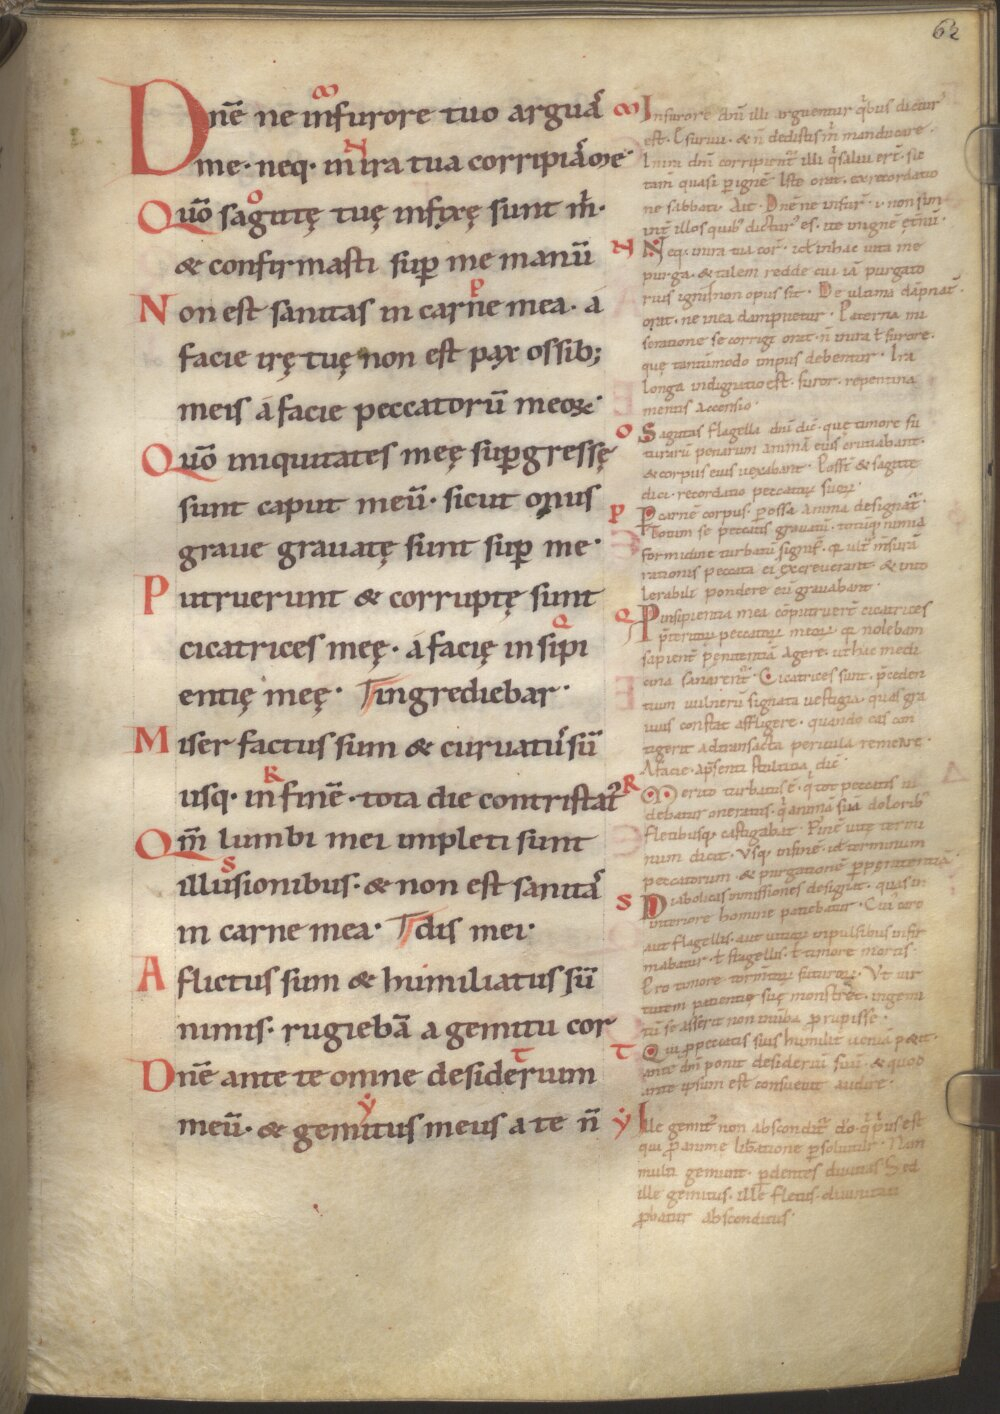 62
Dnē ne infurore tuo arguā
me· neq· inira tua corripiā me
Quō sagittę tuę infixę sunt m̄·
& confirmasti sup me manū
Non est sanitas in carne mea· á
facie irę tuę non est pax ossib;
meis á facie peccatorū meoꝝ·
Quō iniquitates meę supgressę
sunt caput meū· sicut onus
graue grauatę sunt sup me·
Putruerunt & corruptę sunt
cicatrices meę· á facię insipi
entię meę· ingrediebar·
Miser factus sum & curuatus sū
usq· in finē· tota die contristat
Qm̄ lumbi mei impleti sunt
illusionibus· & non est sanitā
in carne mea· dis mei·
Aflictus sum & humiliatus sū
nimis· rugiebā a gemitu cor
Dnē ante te omne desiderium
meū· & gemitus meus a te ñ
Infurore dnī illi arguentur qibus dictur
est· Esuriui· & ñ dedistis m̄ manducare·
In ira dnī corripient illi qi salui ert̄· sic
tam quasi p ignē· Iste orat· ex recordatio
ne sabbati· Ait· Dnē ne infur· i· non sim
int illos quib dictur es· ite in ignē etnū·
Neq· inira tua cor· id inhac uita me
purga· & talem redde cui iā purgato
rius ignis non opus sit· De ultima dāpnat·
orat· ne inea dampnetur· Paterna mi
seratione se corrigi orat· ñ inira ł furore·
quę tantūmodo impiis debentur· Ira
longa indignatio est· furor· repentina
mentis accensio·
Sagittas flagella dnī dic̄· quę timore fu
turarū penarum animā eius cruciabant·
& corpus eius uexabant· Poss̄t & sagittę
dici· recordatio peccatoꝝ suoꝝ·
P carnē corpus· p ossa anima designat·
Totum se peccatis grauatū· totūq nimia
formidine turbatū signif·
rationis peccata ei excreuerant· & into
lerabili pondere eū grauabant·
P insipientia mea cōputruer̄ cicatrices
p̄teritoꝝ peccatoꝝ meoꝝ· nolebam
sapient penitentiā agere· ut hac medi
cina sanarent· Cicatrices sunt· p̄ceden
tium uulnerū signata uestigia· quas gra
uius constat affligere· quando eas con
tigerit ad transacta pericula remeare·
A facie· ap̄senti stultitia dic̄
Merito turbatus ē· q tot peccatis ui
debatur oneratus· qi animā suā dolorib
fletibusq· castigabat· Finē uitę termi
num dicit· Usq· infinē· id terminum
peccatorum· & purgationē p penitentiā·
Diabolicas inmissiones designat· quas in
interiore homine patiebatur· Cui caro
aut flagellis· aut uitioꝝ inpulsibus infir
mabatur· ł flagellis· ł timore mortis·
Pro timore tormtoꝝ futuroꝝ· Ut uir
tutem patientię suę monstret· ingemi
tū se asserit non inuba prupisse·
Qui p peccatis suis humilit ueniā poscit·
ante dnī ponit desideriū suū· & quod
ante ipsum est consueuit audire·
Ille gemit non abscondit do· qi p̄us est
qui p animę libatione psoluitur· Nam
multi gemunt· pdentes diuitias Sed
ille gemitus· ille fletus· diuinitati
pbatur absconditus·